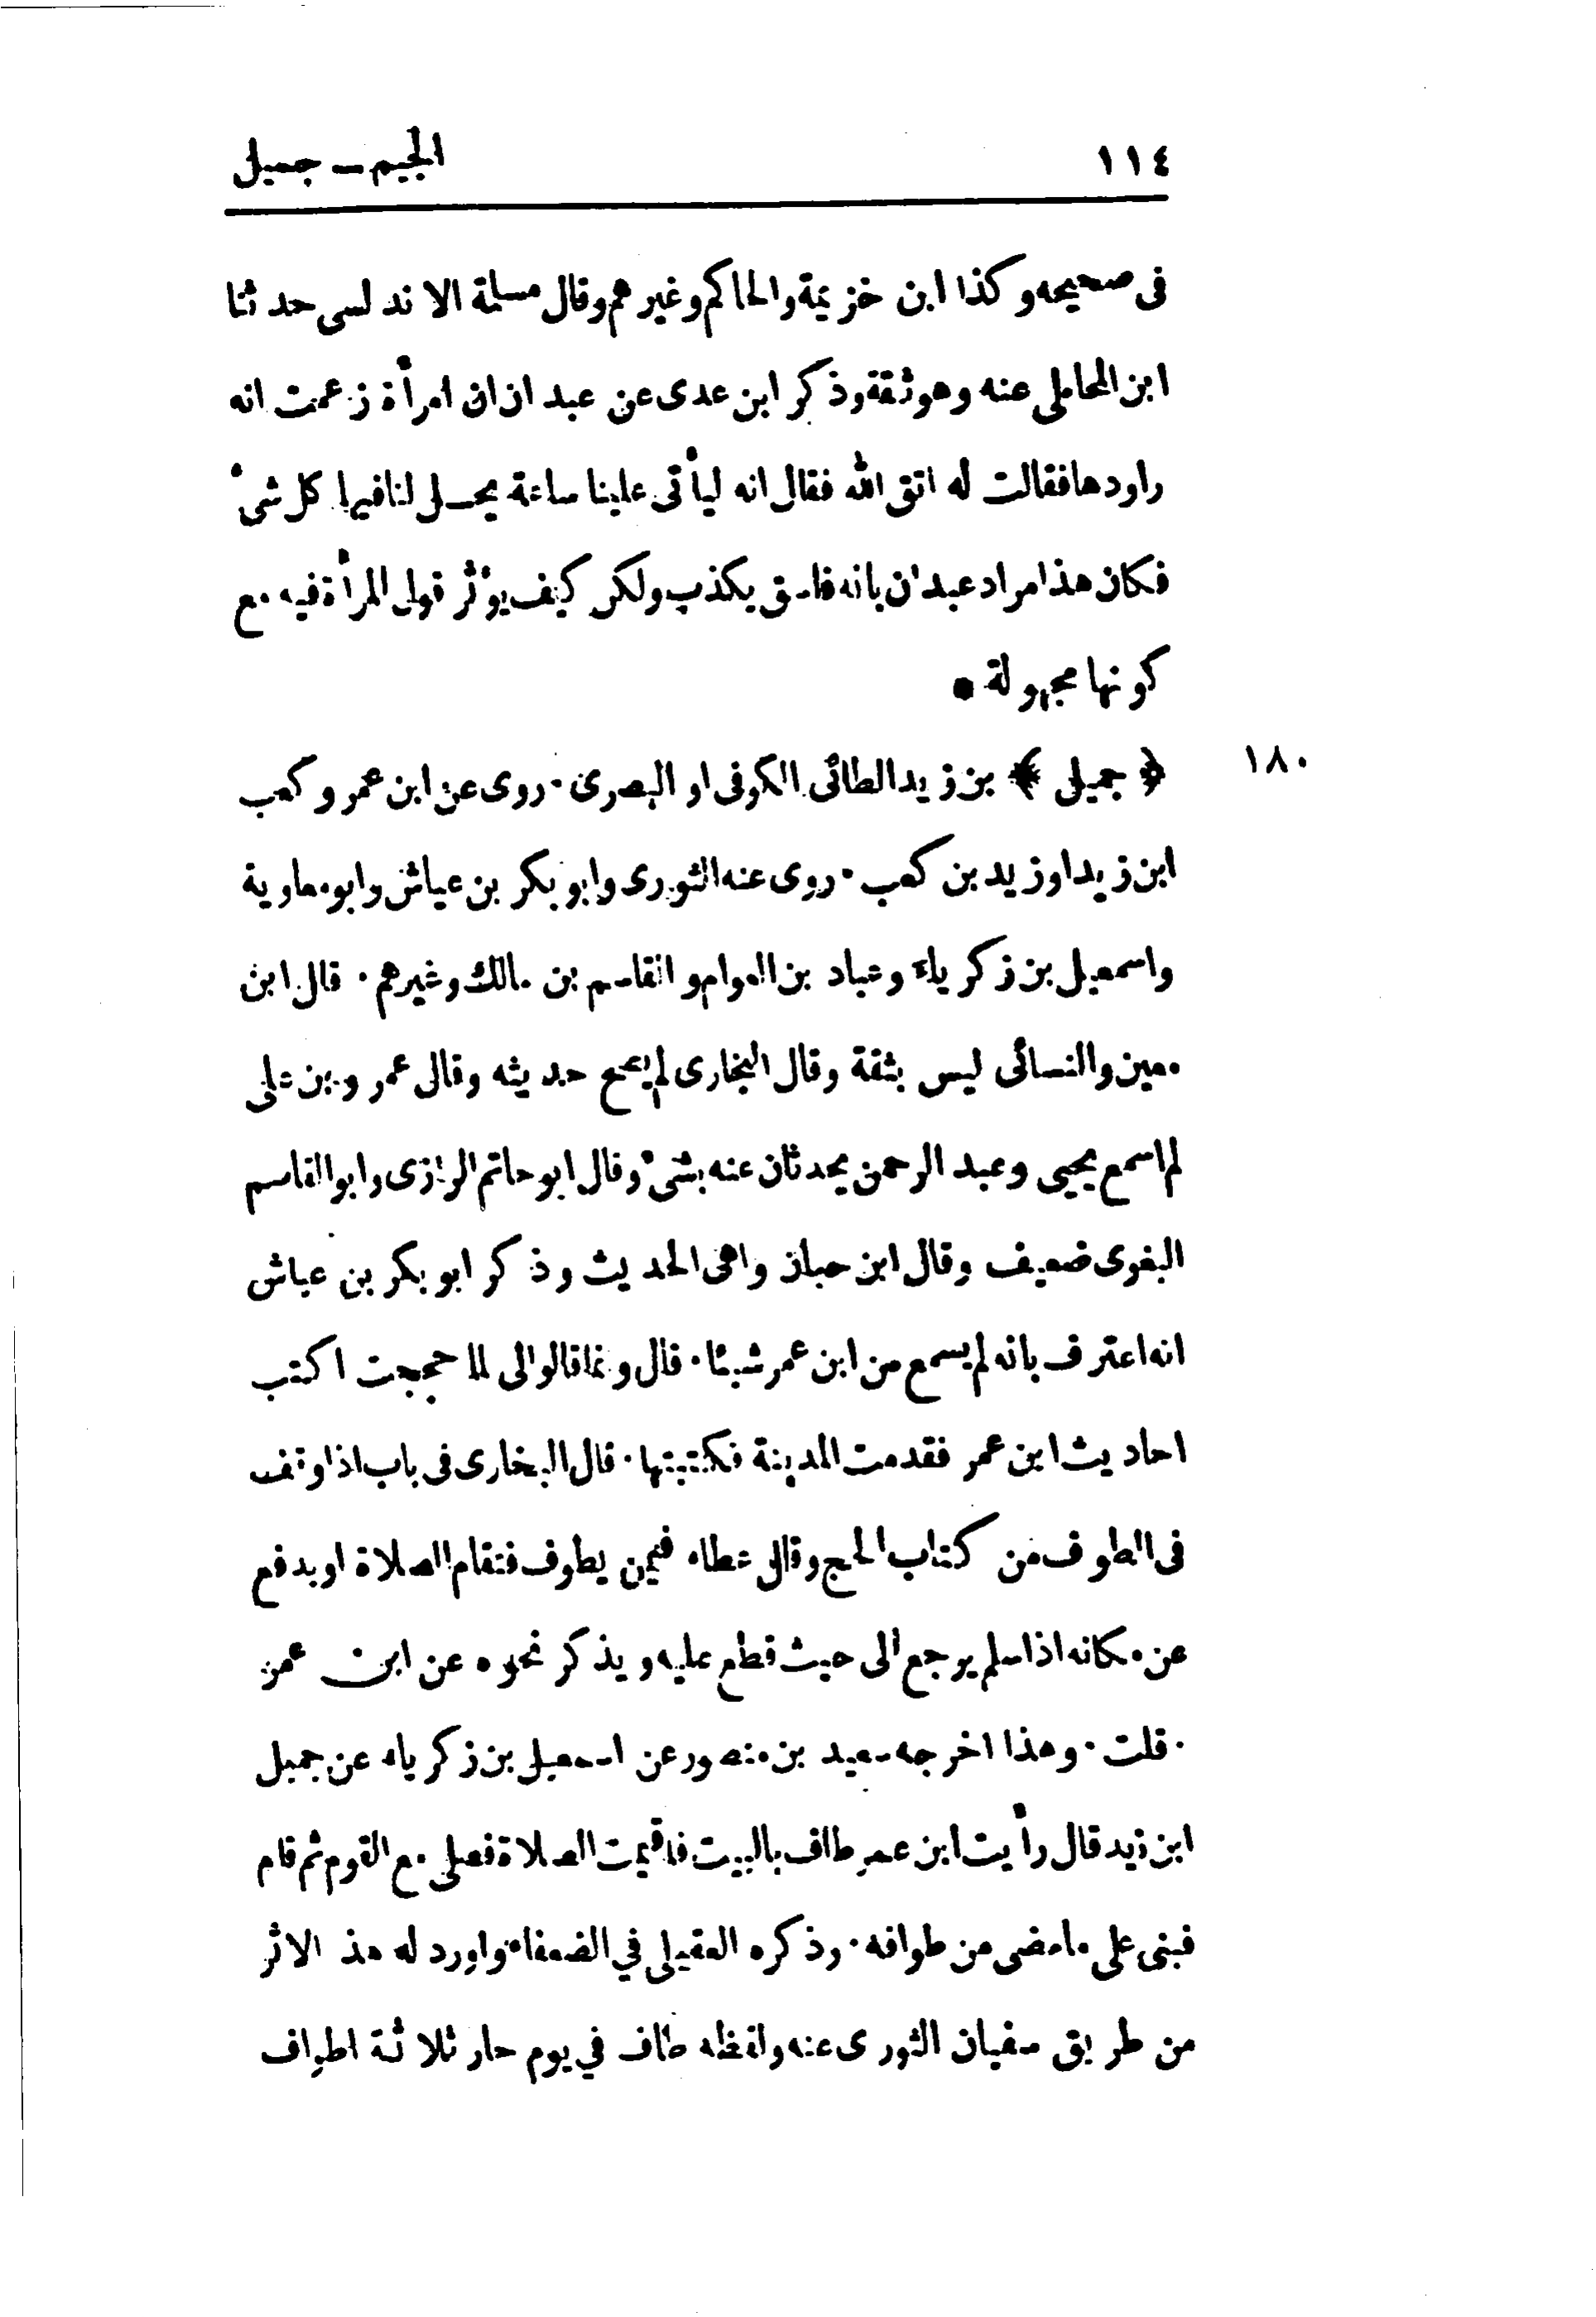 ١١٤ الجيم – جميل
فى صحيحه وكذا ابن خزيمة والحاكم وغيرهم وقال مسلمة الاندلسى حدثنا
ابن المحاملى عنه وهو ثقة وذكر ابن عدى عن عبدان ان امرأة زعمت انه
راودها فقالت له اتق الله فقال انه ليأتى علينا ساعة يحل لنا فيها كل شىء
فكان هذا مراد عبدان بانه فاسق يكذب ولكن كيف يؤثر قول المرأة فيه مع
كونها مجهولة •
١٨٠ ﴿ جميل ﴾ بن زيد الطائى الكوفى او البصرى · روى عن ابن عمر وكعب
ابن زيد او زيد بن كعب · روى عنه الثورى وابو بكر بن عياش وابو معاوية
واسمعيل بن زكرياء وعباد بن العوام والقاسم بن مالك وغيرهم · قال ابن
معين والنسائى ليس بثقة وقال البخارى لم يصح حديثه وقال عمرو بن على
لم اسمع يحيى وعبد الرحمن يحدثان عنه بشىء وقال ابو حاتم الرازى وابو القاسم
البغوى ضعيف وقال ابن حبان واهى الحديث وذكر ابو بكر بن عياش
انه اعترف بانه لم يسمع من ابن عمر شيئا · قال وانما قالوا لى لما حججت اكتب
احاديث ابن عمر فقدمت المدينة فكتبتها · قال البخارى فى باب اذا وقف
فى الطوف من كتاب الحج وقال عطاء فيمن يطوف فتقام الصلاة او يدفع
عن مكانه اذا سلم يرجع الى حيث قطع عليه ويذكر نحوه عن ابن عمر
· قلت · وهذا اخرجه سعيد بن منصور عن اسمعيل بن زكرياء عن جميل
ابن زيد قال رأيت ابن عمر طاف بالبيت فاقيمت الصلاة فصلى مع القوم ثم قام
فبنى على ما مضى من طوافه · وذكره العقيلى في الضعفاء واورد له هذ الاثر
من طريق سفيان الثورى عنه ولفظه طاف في يوم حار ثلاثة اطواف